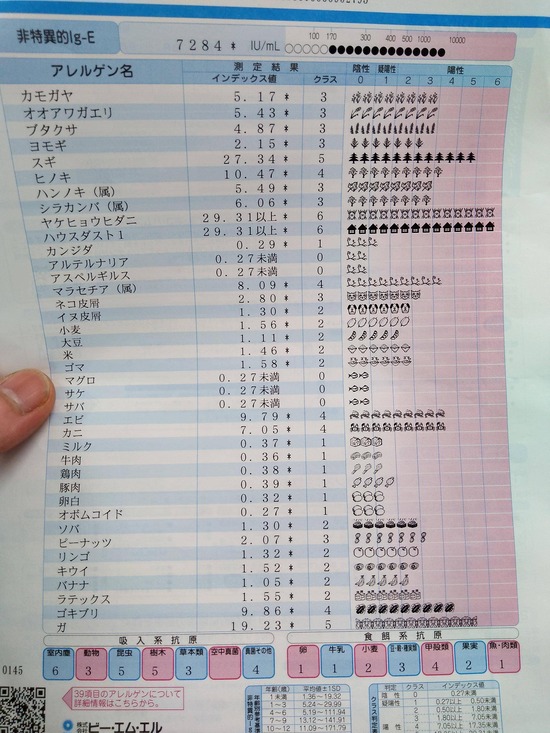 非特異的Ig-E 7284* IU/mL 100 170 400 1000 10000
アレルゲン名 測定結果 インデックス値 クラス 陰性 疑陽性 陽性
0 1 2 3 4 5 6
カモガヤ 5.17* 3
オオアワガエリ 5.43* 3
ブタクサ 4.87* 3
ヨモギ 2.15* 3
スギ 27.34* 5
ヒノキ 10.47* 4
ハンノキ(属) 5.49* 3
シラカンバ(属) 6.06* 3
ヤケヒョウヒダニ 29.31以上* 6
ハウスダスト1 29.31以上* 6
カンジダ 0.29* 1
アルテルナリア 0.27未満 0
アスペルギルス 0.27未満 0
マラセチア(属) 8.09* 4
ネコ皮屑 2.80* 3
イヌ皮屑 1.30* 2
小麦 1.56* 2
大豆 1.11* 2
米 1.46* 2
ゴマ 1.58* 2
マグロ 0.27未満 0
サケ 0.27未満 0
サバ 0.27未満 0
エビ 9.79* 4
カニ 7.05* 4
ミルク 0.37* 1
牛肉 0.36* 1
鶏肉 0.38* 1
豚肉 0.39* 1
卵白 0.32* 1
オボムコイド 0.27* 1
ソバ 1.30* 2
ピーナッツ 2.07* 3
リンゴ 1.32* 2
キウイ 1.52* 2
バナナ 1.05* 2
ラテックス 1.55* 2
ゴキブリ 9.86* 4
ガ 19.23* 5
吸入系抗原 食餌系抗原
室内塵 動物 昆虫 樹木 草本類 空中真菌 真菌その他 卵 牛乳 小麦 豆・穀・種実類 甲殻類 果実 魚・肉類
6 3 5 5 3 4 1 1 2 3 4 2 1
0145
39項目のアレルゲンについて
詳細情報はこちらから。
株式会社 ビー・エム・エル
年齢(歳) 平均値±1SD
1未満 1.36~19.32
1~3 5.24~29.99
4~6 5.19~111.94
7~9 13.12~141.91
10~12 11.09~171.79
判定 クラス インデックス値
陰性 0 0.27未満
疑陽性 1 0.27以上 0.50未満
2 0.50以上 1.80未満
3 1.80以上 7.05未満
陽性 4 7.05以上 17.35未満